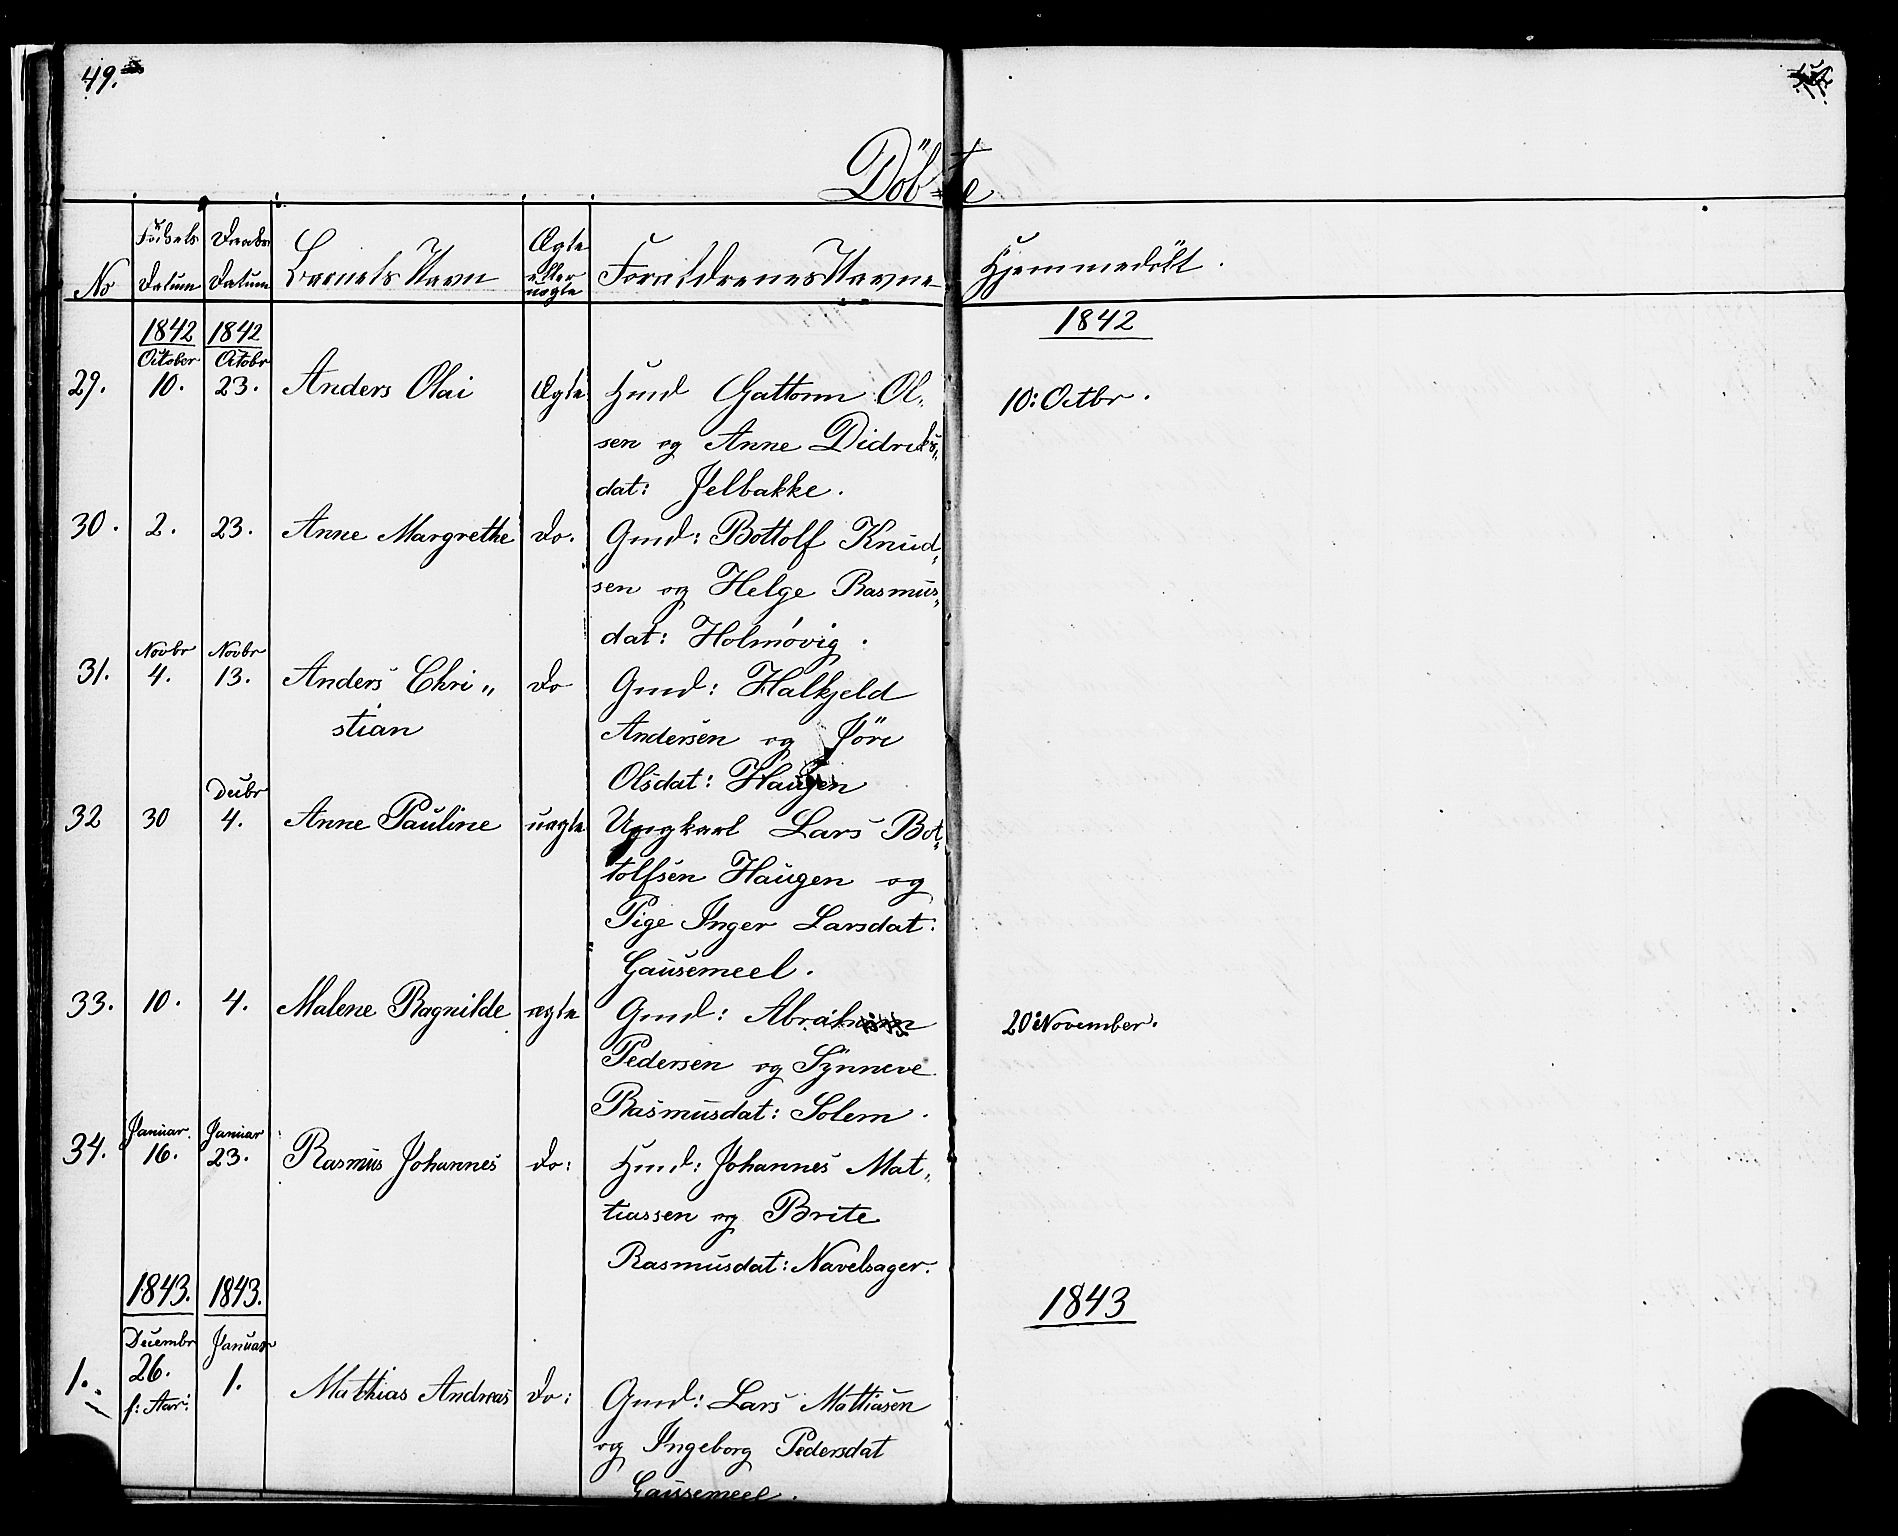 49.
Döbte
No
Födsels Datum
Daabs Datum
Barnets Navn
Ægte eller uægte
Forældrenes Navne
Hjemmedöbt.
1842 1842 1842
October Octobr
29. 10. 23. Anders Olai Ægte Hmd Gattorm Ol„ 10: Octbr.
sen og Anne Didriks„
dat: Jelbakke.
30. 2. 23. Anne Margrethe do. Gmd: Bottolf Knud„
sen og Helge Rasmus„
dat: Holmövig.
Novbr Novbr
31. 4. 13. Anders Chri„ do Gmd: Halkjeld
stian Andersen og Jöri
Olsdat: Haugen
Decbr
32 30 4. Anne Pauline uægte Ungkarl Lars Bot„
tolfsen Haugen og
Pige Inger Larsdat:
Gausemeel.
33. 10. 4. Malene Ragnilde ægte Gmd: Abraham 20 November.
Pedersen og Synneve
Rasmusdat: Solem.
Januar. Januar
34. 16. 23. Rasmus Johannes do: Hmd: Johannes Mat„
tiassen og Brite
Rasmusdat: Navelsager.
1843. 1843. 1843
Decembr Januar
1. 26. 1. Mathias Andreas do: Gmd: Lars Mattiasen
f: Aar: og Ingeborg Pedersdat
Gausemeel.